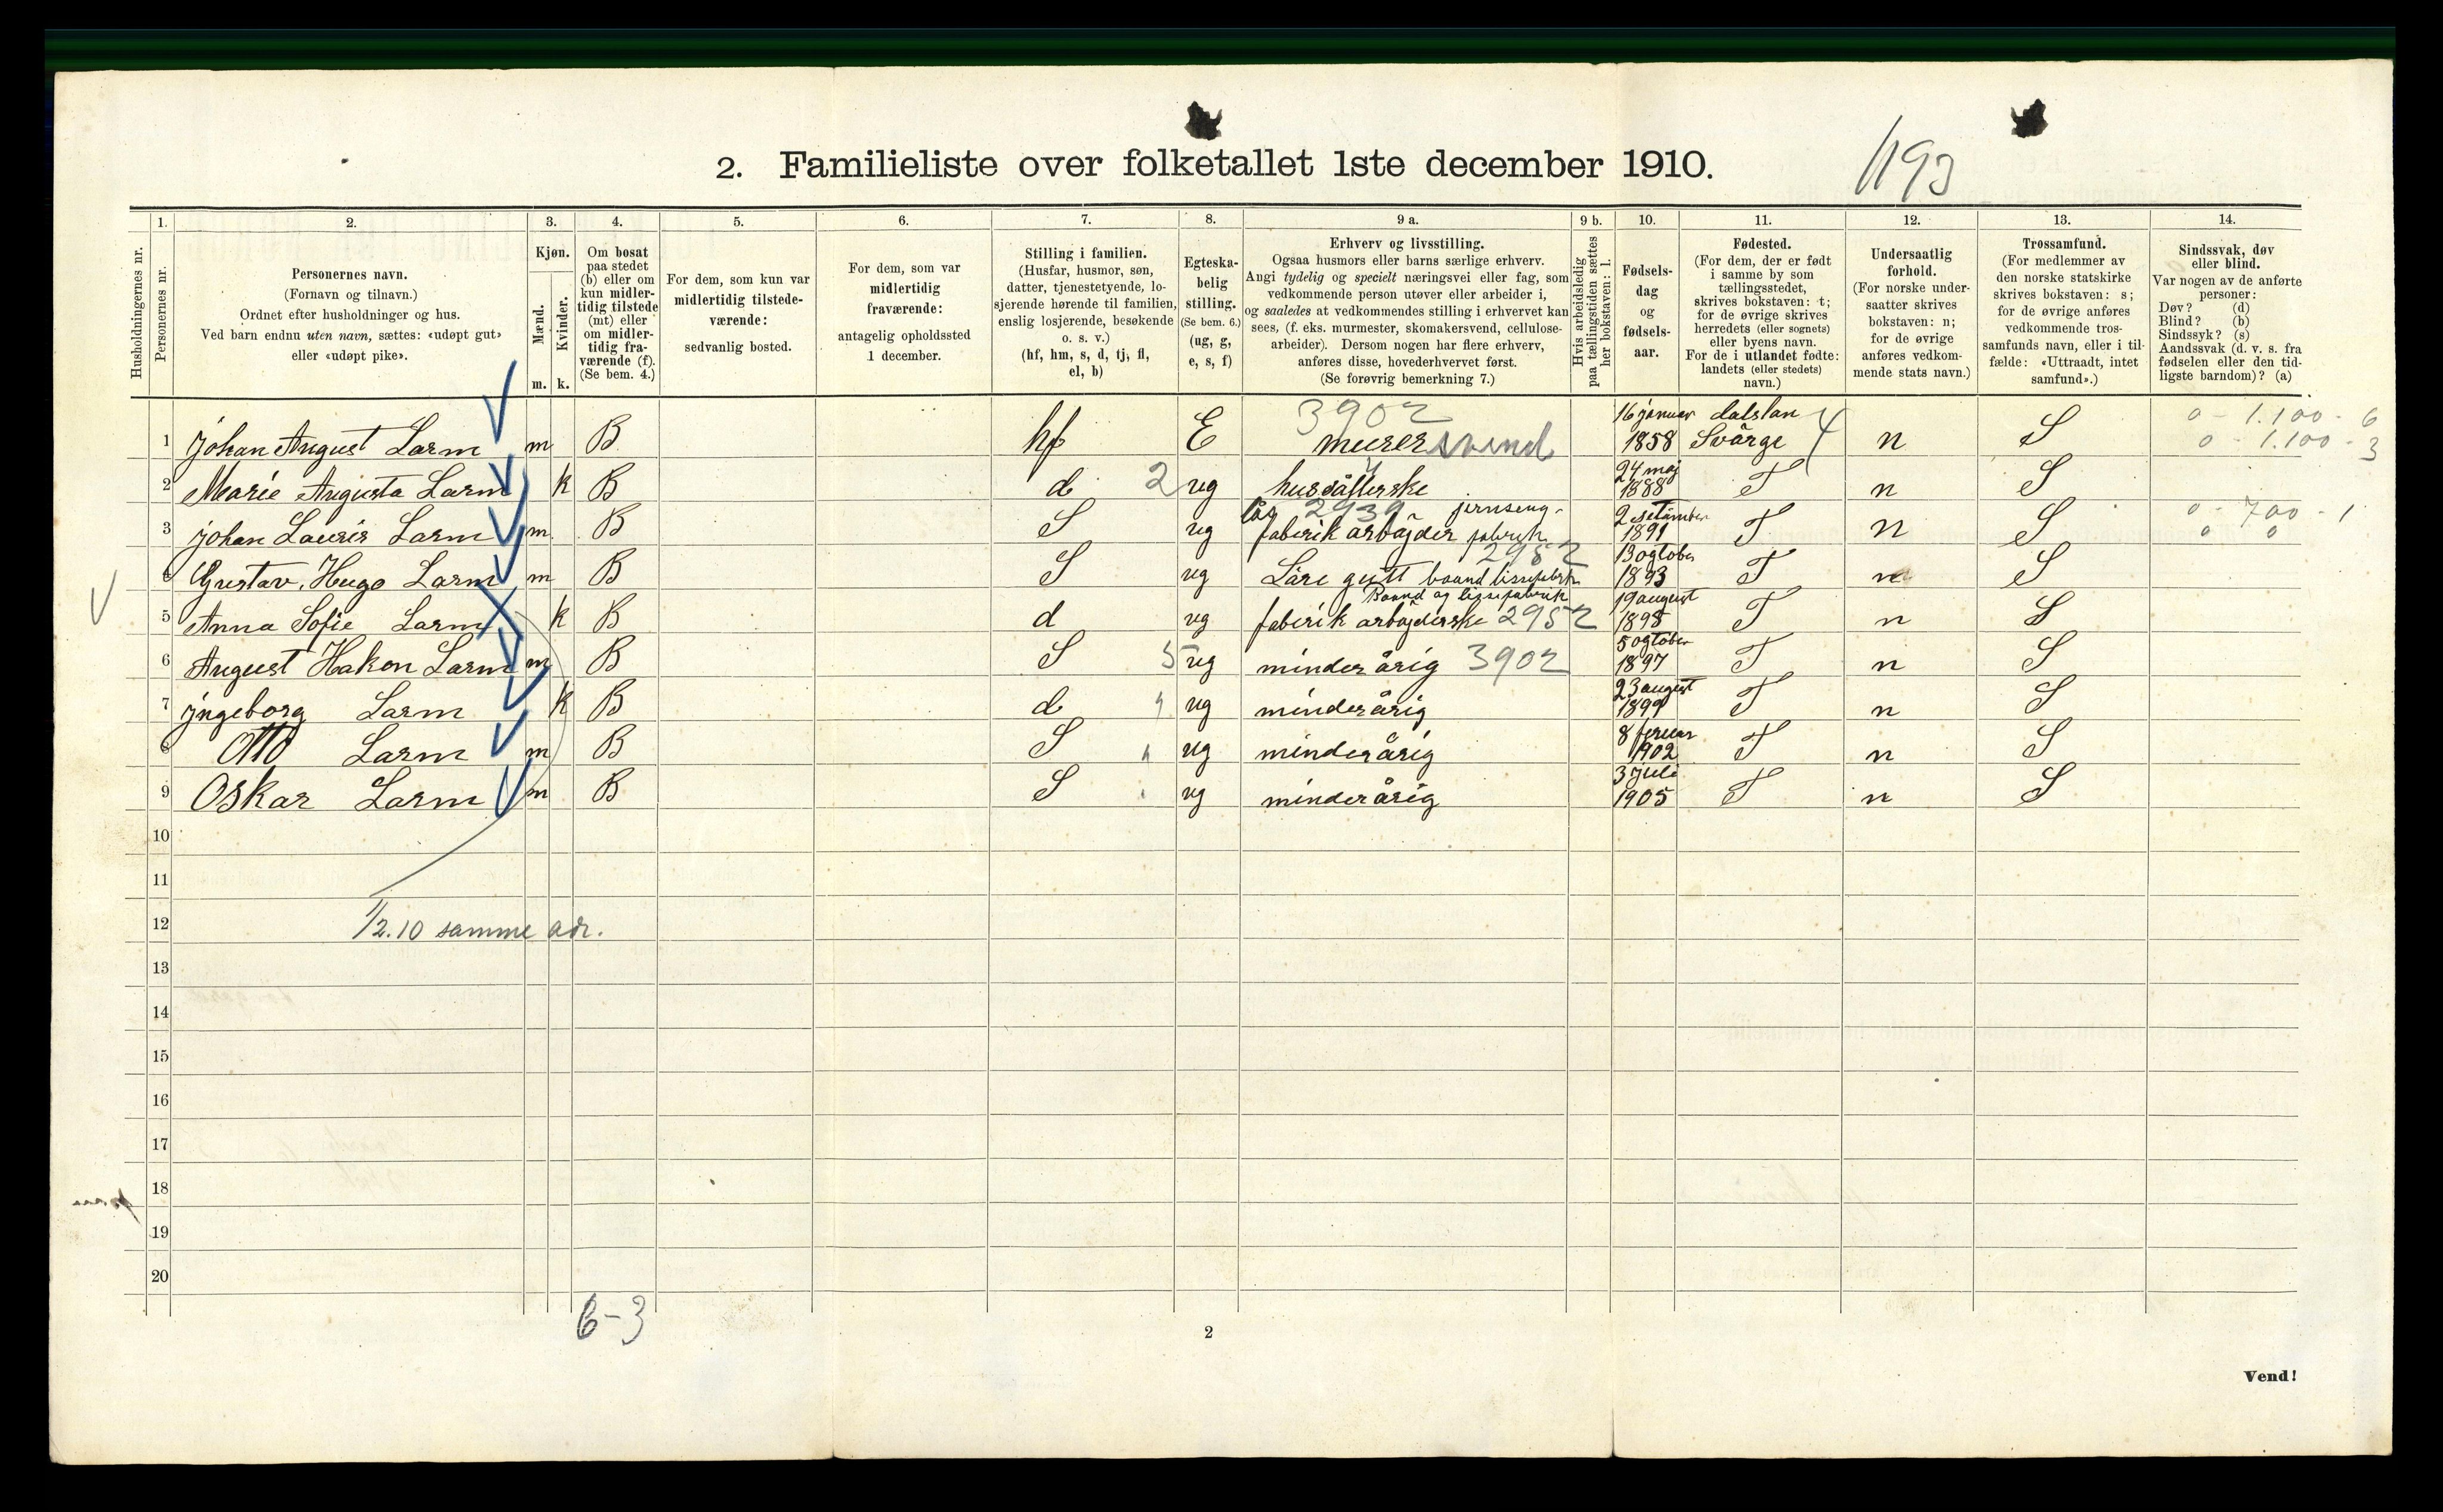 2. Familieliste over folketallet 1ste december 1910.
1193
Husholdningernes nr.
1.
Personernes nr.
2.
Personernes navn.
(Fornavn og tilnavn.)
Ordnet efter husholdninger og hus.
Ved barn endnu uten navn, sættes: «udøpt gut»
eller «udøpt pike».
3.
Kjøn.
Mænd.
Kvinder.
m. k.
4.
Om bosat
paa stedet
(b) eller om
kun midler-
tidig tilstede
(mt) eller
om midler-
tidig fra-
værende (f).
(Se bem. 4.)
5.
For dem, som kun var
midlertidig tilstede-
værende:
sedvanlig bosted.
6.
For dem, som var
midlertidig
fraværende:
antagelig opholdssted
1 december.
7.
Stilling i familien.
(Husfar, husmor, søn,
datter, tjenestetyende, lo-
sjerende hørende til familien,
enslig losjerende, besøkende
o. s. v.)
(hf, hm, s, d, tj, fl,
el, b)
8.
Egteska-
belig
stilling.
(Se bem. 6.)
(ug, g,
e, s, f)
9 a.
Erhverv og livsstilling.
Ogsaa husmors eller barns særlige erhverv.
Angi tydelig og specielt næringsvei eller fag, som
vedkommende person utøver eller arbeider i,
og saaledes at vedkommendes stilling i erhvervet kan
sees, (f. eks. murmester, skomakersvend, cellulose-
arbeider). Dersom nogen har flere erhverv,
anføres disse, hovederhvervet først.
(Se forøvrig bemerkning 7.)
9 b.
Hvis arbeidsledig
paa tællingstiden sættes
her bokstaven: l.
10.
Fødsels-
dag
og
fødsels-
aar.
11.
Fødested.
(For dem, der er født
i samme by som
tællingsstedet,
skrives bokstaven: t;
for de øvrige skrives
herredets (eller sognets)
eller byens navn.
For de i utlandet fødte:
landets (eller stedets)
navn.)
12.
Undersaatlig
forhold.
(For norske under-
saatter skrives
bokstaven: n;
for de øvrige
anføres vedkom-
mende stats navn.)
13.
Trossamfund.
(For medlemmer av
den norske statskirke
skrives bokstaven: s;
for de øvrige anføres
vedkommende tros-
samfunds navn, eller i til-
fælde: «Uttraadt, intet
samfund».)
14.
Sindssvak, døv
eller blind.
Var nogen av de anførte
personer:
Døv? (d)
Blind? (b)
Sindssyk? (s)
Aandssvak (d. v. s. fra
fødselen eller den tid-
ligste barndom)? (a)
3902 16 januar dalslan 4 0 - 1.100 - 6
1 johan August Larm m B hf E murersvend 1858 Svärge n S 0 - 1.100 - 3
24 maj
2 Marie Augusta Larm k B d 2 ug hussåtterske 1888 T n S
2939 jernseng- 2 setämber 0 - 700 - 1
3 johan Lauris Larm m B S ug faberik arbäjder fabrik 1891 T n S 0 0
2952 13 ogtober
4 Gustav. Hugo Larm m B S ug Läre gutt baand lissefabrik 1893 T n S
Baand og lissefabrik 19 august
5 Anna Sofie Larm k B d ug faberik arbäjderske 2952 1895 T n S
5 ogtober
6 August Hakon Larm m B S 5 ug minderårig 3902 1897 T n S
23 august
7 jngeborg Larm k B d " ug minderårig 1899 T n S
8 feruar
8 Otto Larm m B S " ug minderårig 1902 T n S
3 juli
9 Oskar Larm m B S ug minderårig 1905 T n S
10
11
12 1/2.10 samme adr.
13
14
15
16
17
18
19
20
6-3
2
Vend!